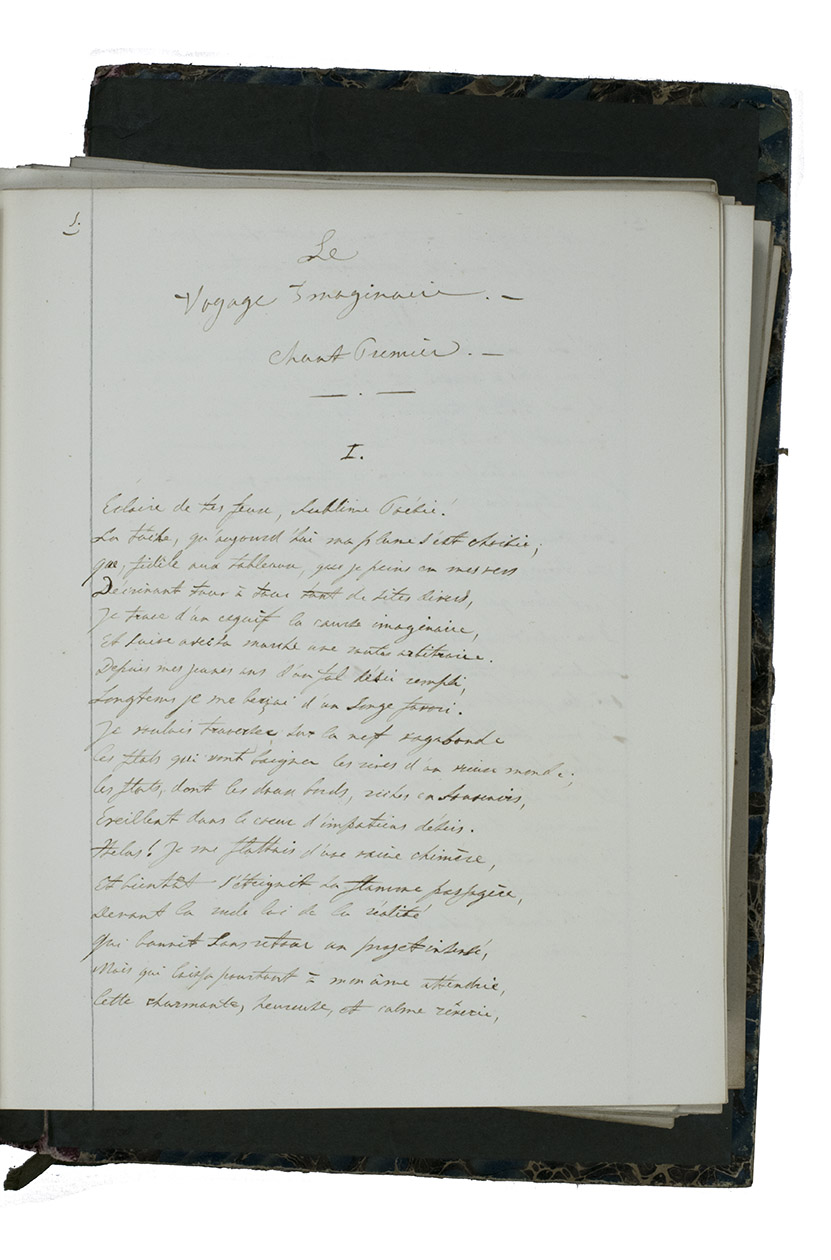 1.
Le
Voyage Imaginaire. —
Chant Premier. —
— . —
I.
Eclaire de tes feux, Sublime Poésie!
La tâche, qu'aujourd'hui ma plume s'est choisie;
que, fidèle aux tableaux, que je peins en mes vers
Décrivant tour à tour tant de sites divers,
Je trace d'un esquif la course imaginaire,
Et suive avec sa marche une route arbitraire.
Depuis mes jeunes ans d'un fol désir rempli,
Longtems je me berçai d'un Songe favori.
Je voulais traverser sur la nef vagabonde
les flots qui vont baigner les rives d'un vieux monde;
les flots, dont les doux bords, riches en Souvenirs,
Eveillent dans le coeur d'impatiens désirs.
Helas! Je me flattais d'une vaine chimère,
Et bientôt s'éteignit sa flamme passagère,
Devant la rude loi de la réalité
Qui bannit Sans retour un projet insensé,
Mais qui laissa pourtant à mon âme attendrie,
Cette charmante, heureuse, et calme rêverie,